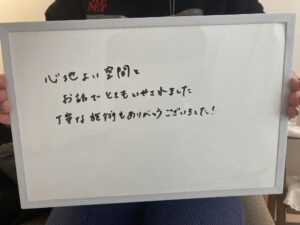 心地よい空間と
お話でとてもいやされました
丁寧な施術もありがとうございました!